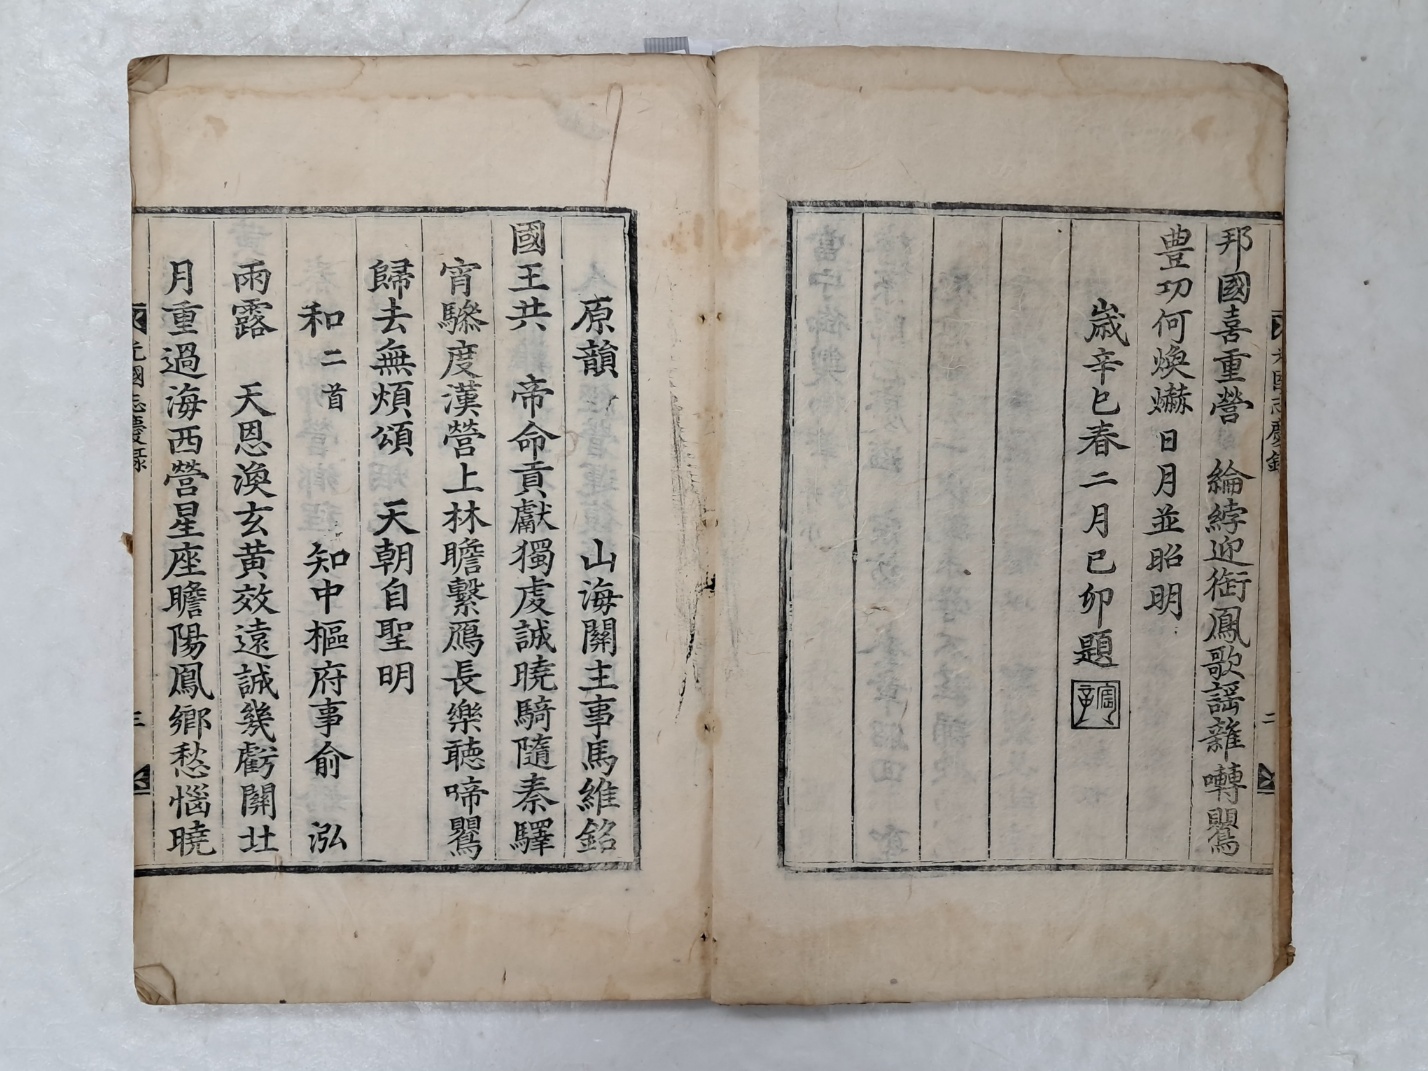 邦國喜重營 綸綍迎銜鳳歌謡雜囀鸎
豊功何煥爀 日月並昭明
歲辛巳春二月己卯題
二
原韻 山海關主事馬維銘
國王共 帝命貢獻獨虔誠曉騎隨秦驛
宵驂度漢營上林瞻繫鴈長樂聴啼鸎
歸去無煩頌 天朝自聖明
和二首 知中樞府事俞 泓
雨露 天恩渙玄黃效遠誠幾虧關壮
月重過海西營星座瞻陽鳳鄉愁惱曉
光國志慶錄
三